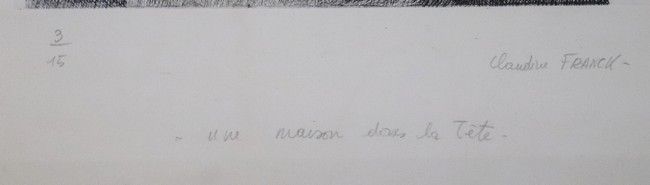 3
15
Claudine FRANCK -
- une maison dans la Tête -